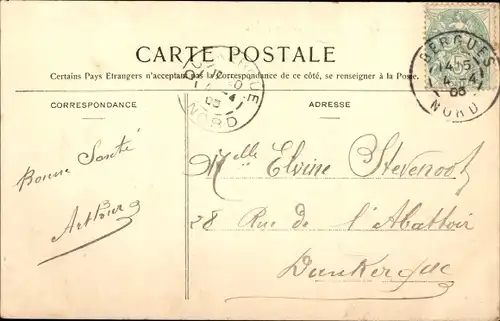 CARTE POSTALE
Certains Pays Etrangers n'acceptant pas la Correspondance de ce côté, se renseigner à la Poste.
CORRESPONDANCE
ADRESSE
BERGUES
NORD
NORD
Bonne Santé
Arthur
Melle Elvine Stevenoot
28 Rue de l'Abattoir
Dunkerque